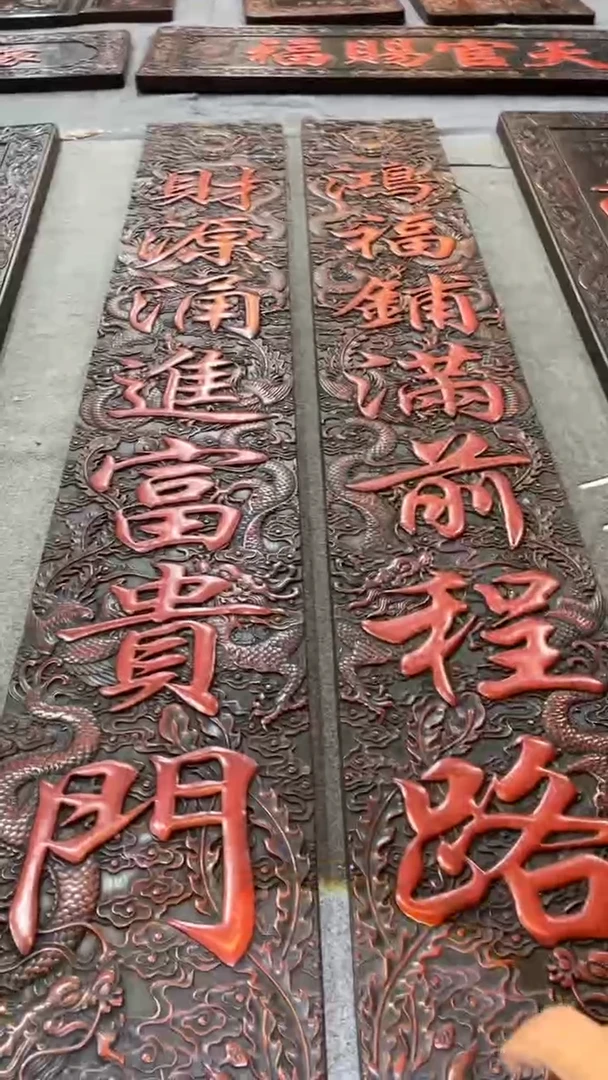 天官賜福
鴻福鋪滿前程路
財源涌進富貴門